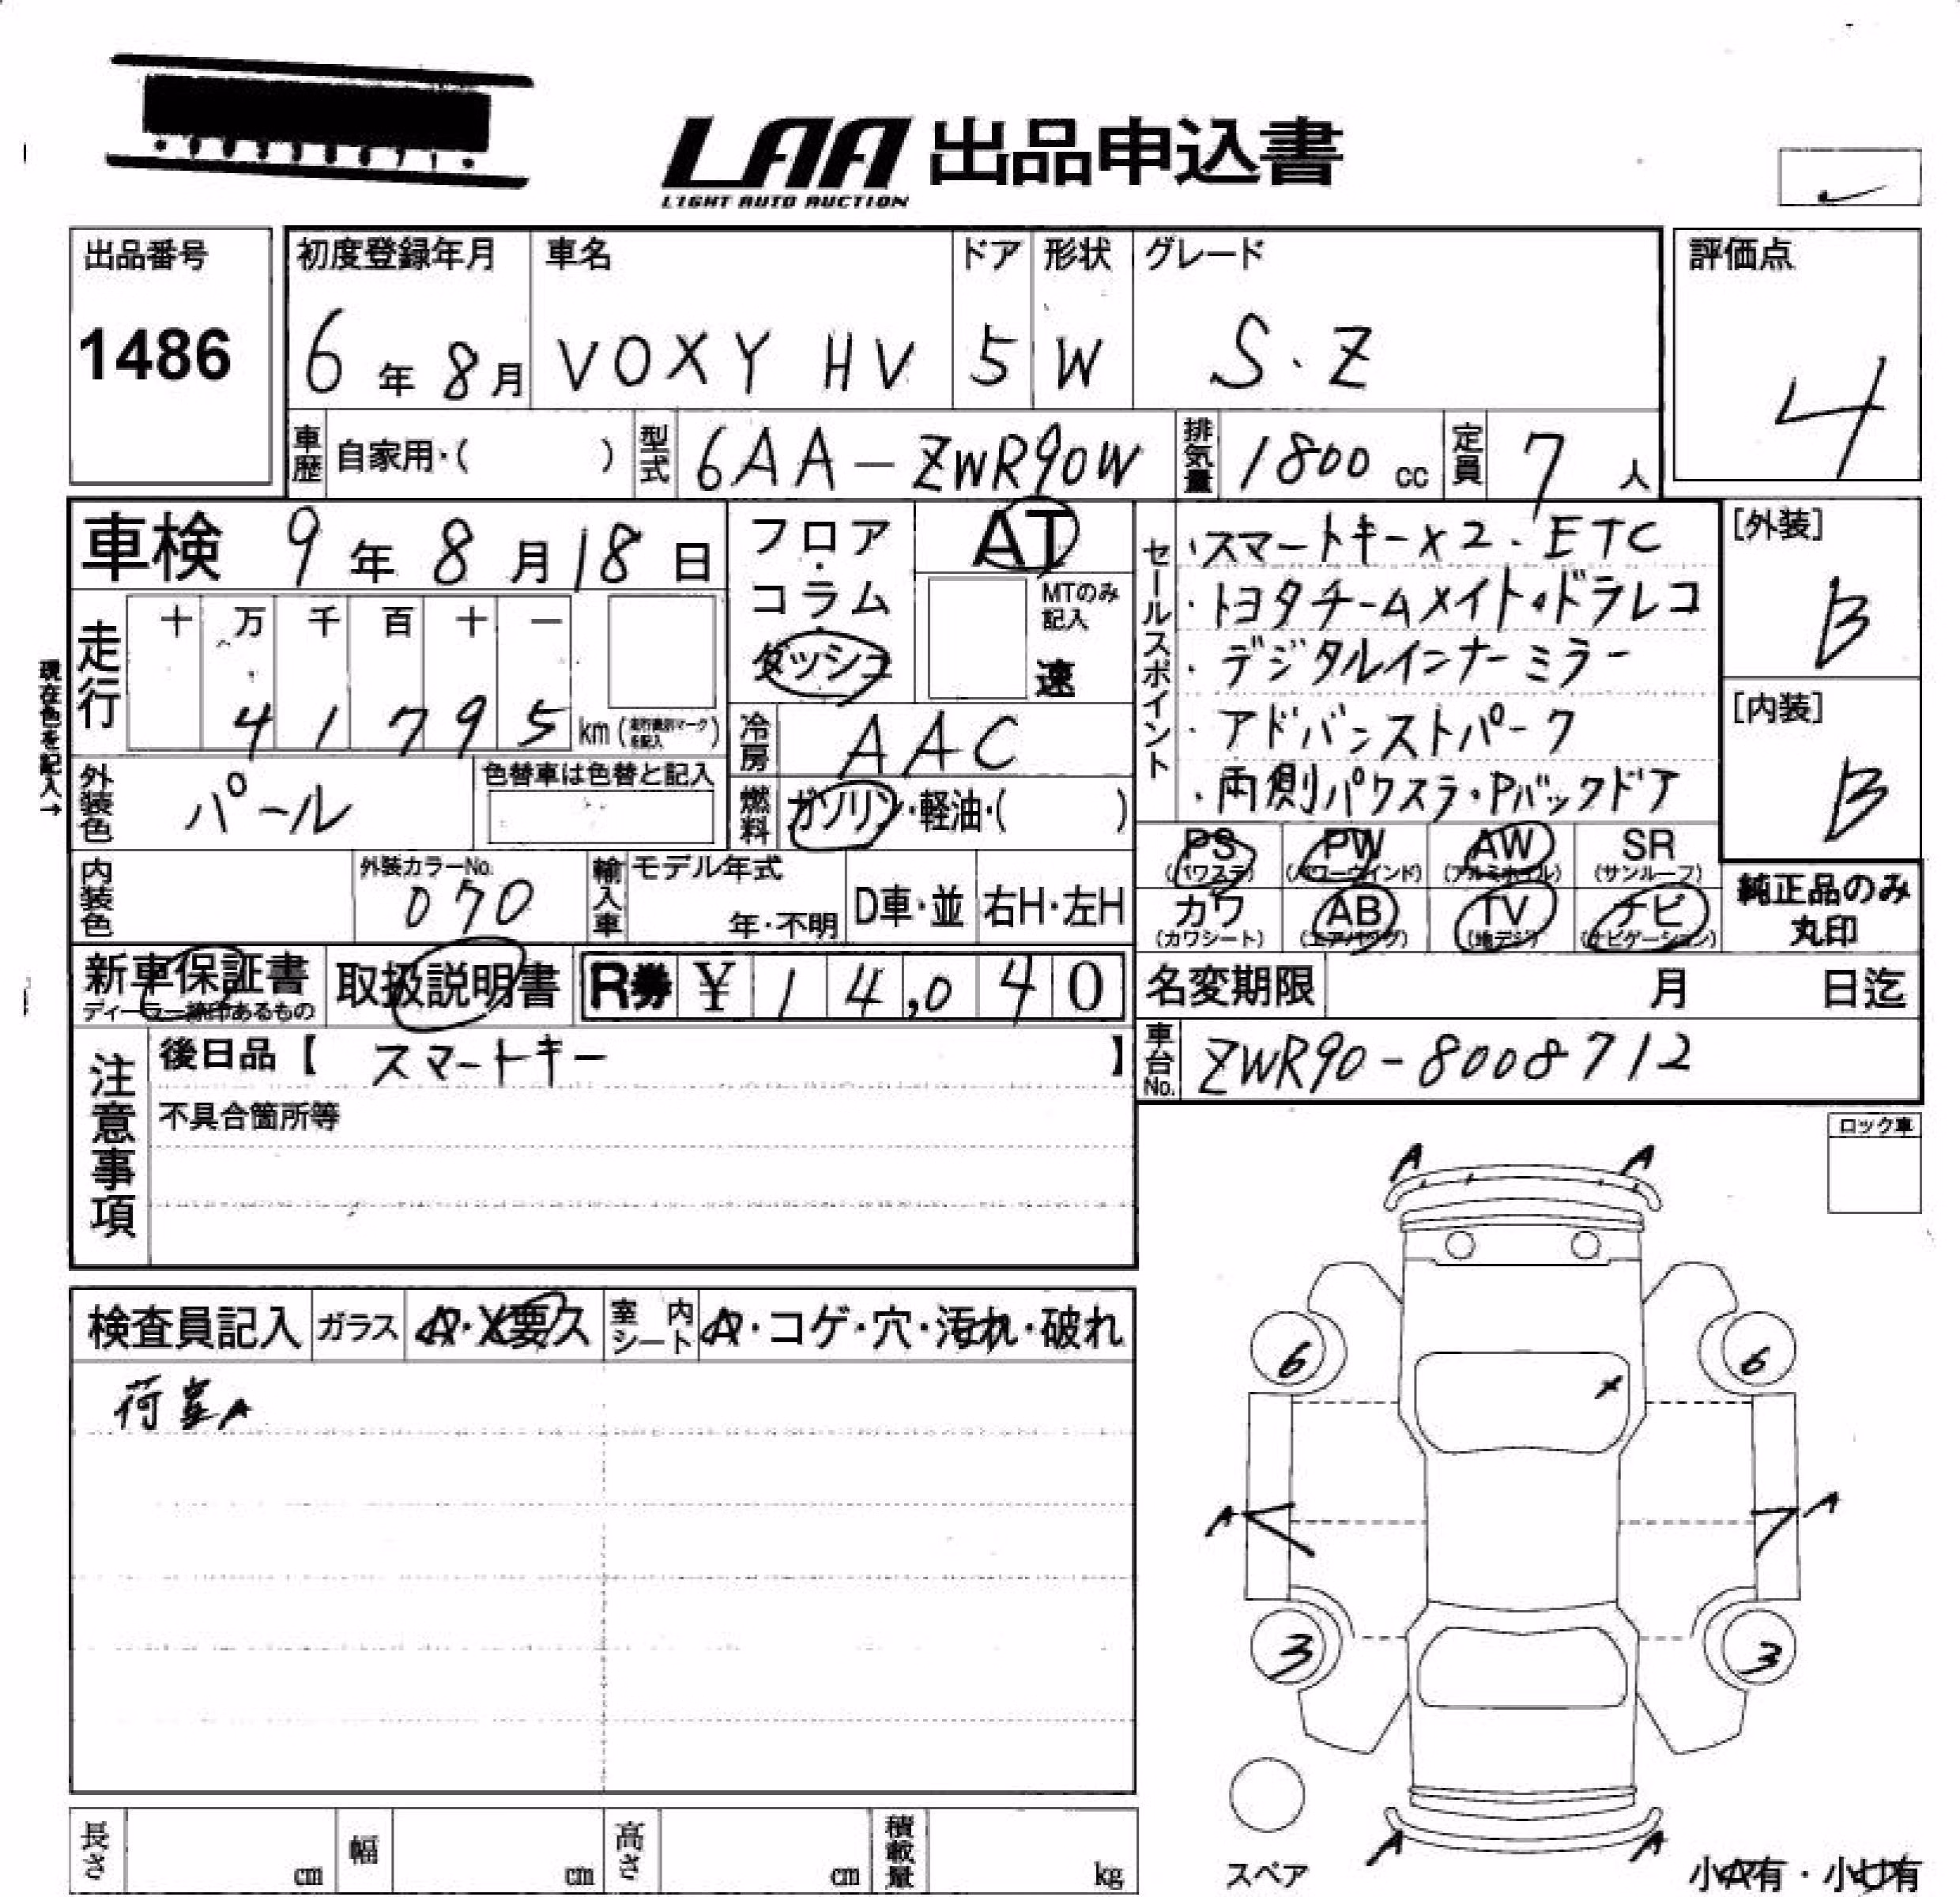 LAA 出品申込書
LIGHT AUTO AUCTION
出品番号
1486
初度登録年月 車名 ドア 形状 グレード
6年8月 VOXY HV 5 W S・Z
評価点
4
車歴 自家用・( ) 型式 6AA-ZWR90W 排気量 1800cc 定員 7人
車検 9年8月18日
フロア・コラム・ダッシュ
AT
MTのみ記入
速
走行 十 万 千 百 十 一
41795 km (走行識別マークを記入)
現在色を記入→
冷房 AAC
外装色 パール 色替車は色替と記入
燃料 ガソリン・軽油・( )
セールスポイント
・スマートキー×2・ETC
・トヨタチームメイト・ドラレコ
・デジタルインナーミラー
・アドバンストパーク
・両側パワスラ・Pバックドア
[外装]
B
[内装]
B
PS (パワステ) PW (パワーウインド) AW (アルミホイル) SR (サンルーフ)
カワ (カワシート) AB (エアバッグ) TV (地デジ) ナビ (ナビゲーション)
純正品のみ丸印
内装色 外装カラーNo. 070 輸入車 モデル年式 年・不明 D車・並 右H・左H
新車保証書 取扱説明書 R券 ¥14,040
名変期限 月 日迄
車台No. ZWR90-8008712
注意事項
後日品【 スマートキー 】
不具合箇所等
ロック車
検査員記入 ガラス A・X要久 室内シート A・コゲ・穴・汚れ・破れ
荷室A
A A
6 6
X
A A
3 3
A A
スペア
小A有・小U有
長さ cm 幅 cm 高さ cm 積載量 kg